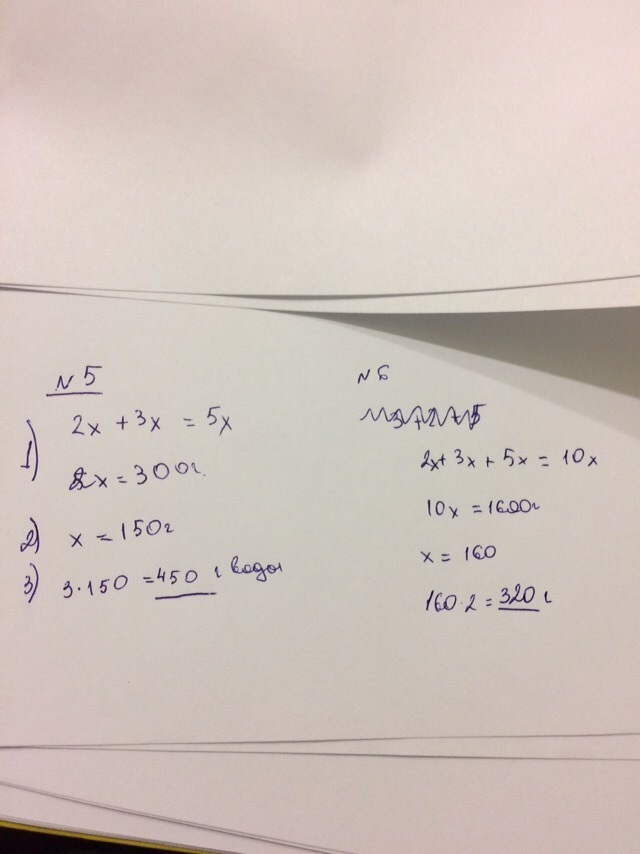 N 5
1) 2x + 3x = 5x
2x = 300г.
2) x = 150г
3) 3·150 = 450 г воды
N 6
2x + 3x + 5x = 10x
10x = 1600г
x = 160
160·2 = 320 г